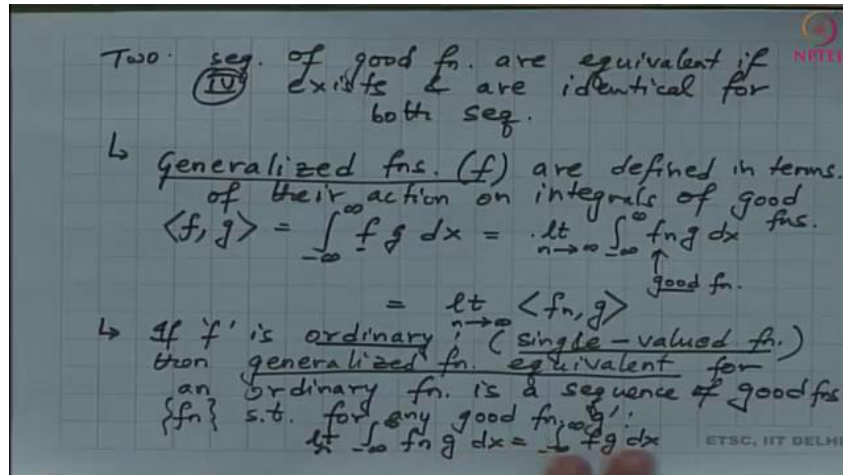 NPTEL
Two seq. of good fn. are equivalent if
(IV) exists & are identical for
both seq.
↳ Generalized fns. (f) are defined in terms
of their action on integrals of good
fns.
<f, g> = ∫_{-∞}^{∞} f g dx = lt_{n→∞} ∫_{-∞}^{∞} fn g dx
↑
good fn.
= lt_{n→∞} <fn, g>
↳ If 'f' is ordinary : (single-valued fn.)
then generalized fn. equivalent for
an ordinary fn. is a sequence of good fns
{fn} s.t. for any good fn, 'g' :
lt ∫_{-∞}^{∞} fn g dx = ∫_{-∞}^{∞} f g dx
ETSC, IIT DELHI